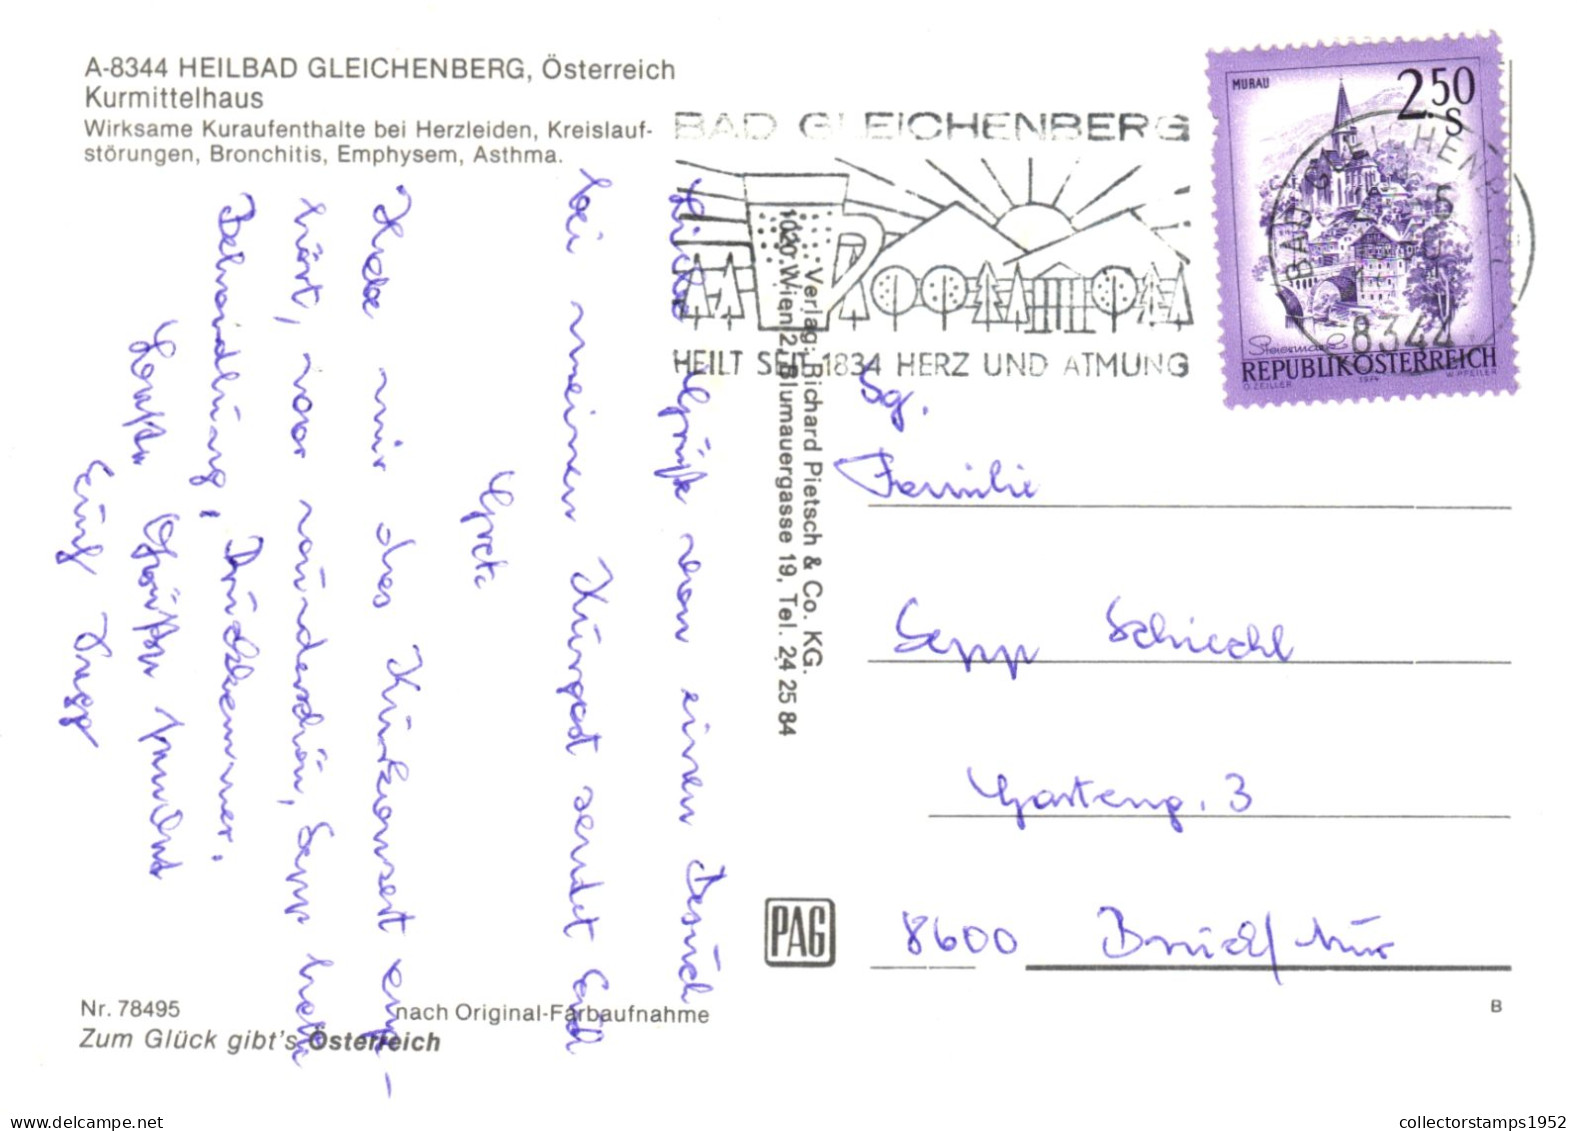 A-8344 HEILBAD GLEICHENBERG, Österreich
Kurmittelhaus
Wirksame Kuraufenthalte bei Herzleiden, Kreislauf-
störungen, Bronchitis, Emphysem, Asthma.
BAD GLEICHENBERG
HEILT SEIT 1834 HERZ UND ATMUNG
MURAU
2.50
S
Steiermark
REPUBLIK ÖSTERREICH
O. ZEILER 1974 W. PFEILER
BAD GLEICHENBERG
8344
Liebe Grüße von einem Besuch
bei meinem Kurgast sendet Euch
Grete
Habe mir das Kurkonzert ange-
hört, war wunderschön, Sepp hatte
Behandlung, Druckkammer.
Euch Sepp
Verlag: Richard Pietsch & Co. KG.
1020 Wien 2, Blumauergasse 19, Tel. 24 25 84
Sg.
Familie
Sepp Schiechl
Garteng. 3
8600 Bruck/Mur
PAG
Nr. 78495
nach Original-Farbaufnahme
B
Zum Glück gibt's Österreich
collectorstamps1952